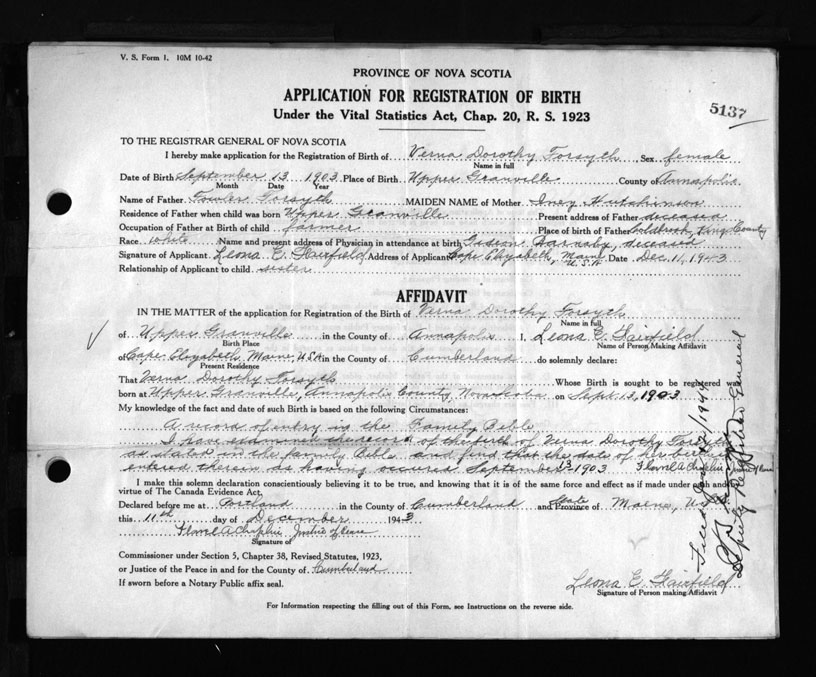 V. S. Form 1. 10M 10-42
PROVINCE OF NOVA SCOTIA
APPLICATION FOR REGISTRATION OF BIRTH
Under the Vital Statistics Act, Chap. 20, R. S. 1923
5137
TO THE REGISTRAR GENERAL OF NOVA SCOTIA
I hereby make application for the Registration of Birth of Verna Dorothy Forsyth Sex female
Name in full
Date of Birth September 13 1903 Place of Birth Upper Granville County of Annapolis
Month Date Year
Name of Father Fowler Forsyth MAIDEN NAME of Mother Hutchinson
Residence of Father when child was born Upper Granville Present address of Father deceased
Occupation of Father at Birth of child farmer Place of birth of Father Kings County
Race white Name and present address of Physician in attendance at birth Gideon Barnaby, deceased
Signature of Applicant Leona E. Fairfield Address of Applicant Cape Elizabeth, Maine U.S.A. Date Dec. 11, 1943
Relationship of Applicant to child sister
AFFIDAVIT
IN THE MATTER of the application for Registration of the Birth of Verna Dorothy Forsyth
Name in full
of Upper Granville in the County of Annapolis I, Leona E. Fairfield
Birth Place Name of Person Making Affidavit
of Cape Elizabeth Maine U.S.A. in the County of Cumberland do solemnly declare:
Present Residence
That Verna Dorothy Forsyth Whose Birth is sought to be registered was
born at Upper Granville, Annapolis County, Nova Scotia on Sept. 13, 1903
My knowledge of the fact and date of such Birth is based on the following Circumstances:
A record of entry in the Family Bible.
I have examined the record of the birth of Verna Dorothy Forsyth
as stated in the family Bible and find that the date of her birth is
entered therein as having occured September 13 1903
I make this solemn declaration conscientiously believing it to be true, and knowing that it is of the same force and effect as if made under oath and by
virtue of The Canada Evidence Act.
Declared before me at Portland in the County of Cumberland and State Province of Maine, U.S.A.
this 11th day of December 1943
Justice of Peace
Signature of
Commissioner under Section 5, Chapter 38, Revised Statutes, 1923,
or Justice of the Peace in and for the County of Cumberland
If sworn before a Notary Public affix seal.
Leona E. Fairfield
Signature of Person making Affidavit
For Information respecting the filling out of this Form, see Instructions on the reverse side.
Filed 1944
Deputy Registrar General